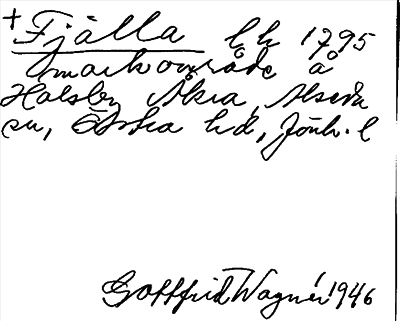 + Fjälla lh 1795
markområde å
Halsby Åkra, Alseda
sn, Östra hd, Jönk. l
Gottfrid Wagnér 1946